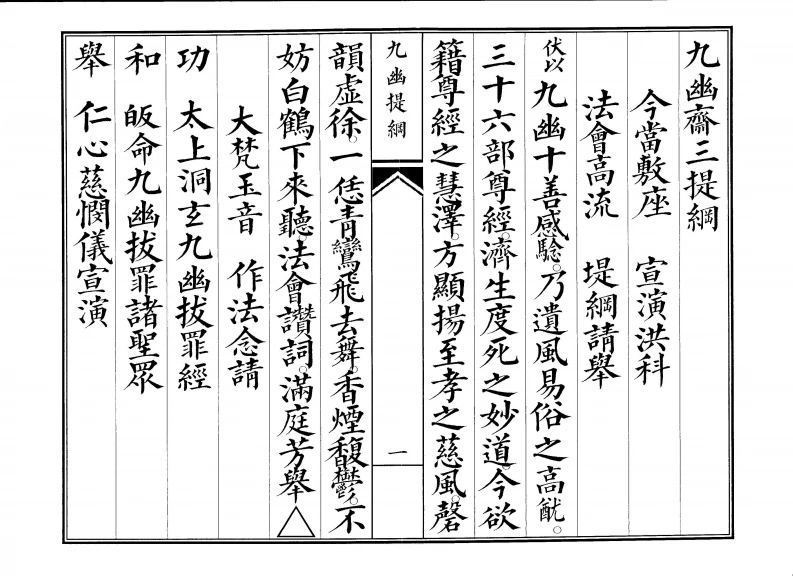 九幽齋三提綱
今當敷座　宣演洪科
法會高流　堤綱請舉
伏以九幽十善感驗。乃遺風易俗之高猷。
三十六部尊經。濟生度死之妙道。今欲
籍尊經之慧澤。方顯揚至孝之慈風。磬
九幽提綱　一
韻虛徐。一恁青鸞飛去舞。香煙馥鬱。不
妨白鶴下來聽。法會讚詞。滿庭芳舉△
大梵玉音　作法念請
功　太上洞玄九幽拔罪經
和　皈命九幽拔罪諸聖眾
舉　仁心慈憫儀宣演